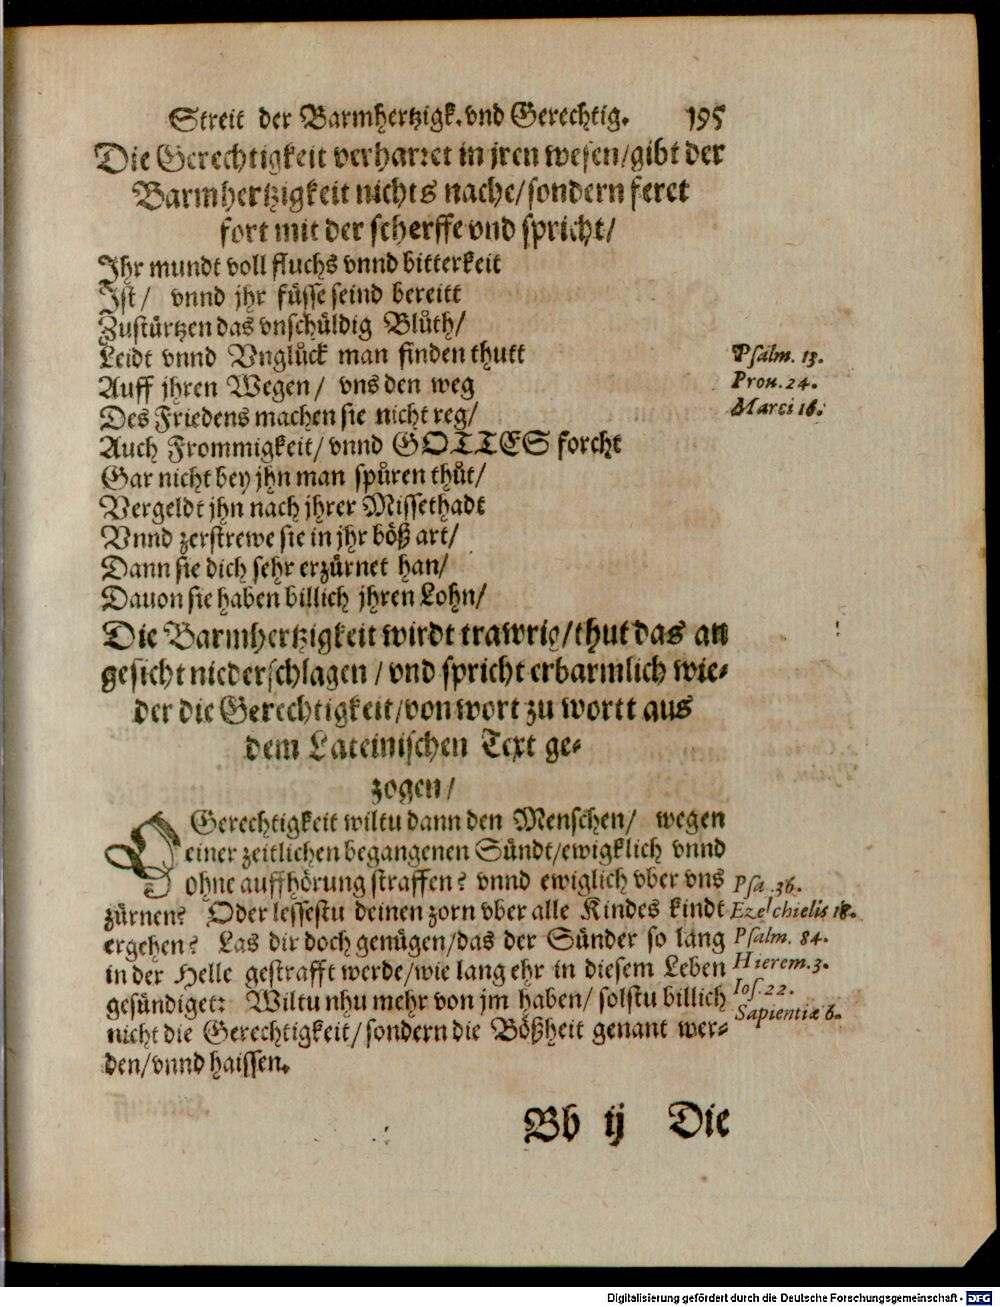 Streit der Barmhertzigk. vnd Gerechtig. 195
Die Gerechtigkeit verharret in jren wesen/gibt der
Barmhertzigkeit nichts nache/sondern feret
fort mit der scherffe vnd spricht/
Ihr mundt voll fluchs vnnd bitterkeit
Ist/ vnnd jhr füsse seind bereitt
Zustürtzen das vnschüldig Blůth/
Leidt vnnd Vnglůck man finden thutt
Psalm. 13.
Auff jhren Wegen/ vns den weg
Prou. 24.
Des Friedens machen sie nicht reg/
Marci 16.
Auch Frommigkeit/ vnnd GOTTES forcht
Gar nicht bey jhn man spůren thůt/
Vergeldt jhn nach jhrer Missethadt
Vnnd zerstrewe sie in jhr böß art/
Dann sie dich sehr erzürnet han/
Dauon sie haben billich jhren Lohn/
Die Barmhertzigkeit wirdt trawrig/thut das an
gesicht niederschlagen/ vnd spricht erbarmlich wie-
der die Gerechtigkeit/von wort zu wortt aus
dem Lateinischen Text ge-
zogen/
O Gerechtigkeit wiltu dann den Menschen/ wegen
einer zeitlichen begangenen Sündt/ewigklich vnnd
ohne auffhörung straffen? vnnd ewiglich vber vns
Psa. 36.
zürnen? Oder lessestu deinen zorn vber alle Kindes kindt
Ezechielis 18.
ergehen? Las dir doch genügen/das der Sünder so lang
Psalm. 84.
in der Helle gestrafft werde/wie lang ehr in diesem Leben
Hierem. 3.
gesündiget: Wiltu nhu mehr von jm haben/ solstu billich
Ios. 22.
nicht die Gerechtigkeit/sondern die Bößheit genant wer-
Sapientiæ 6.
den/vnnd haissen.
Bb ij Die
Digitalisierung gefördert durch die Deutsche Forschungsgemeinschaft - DFG